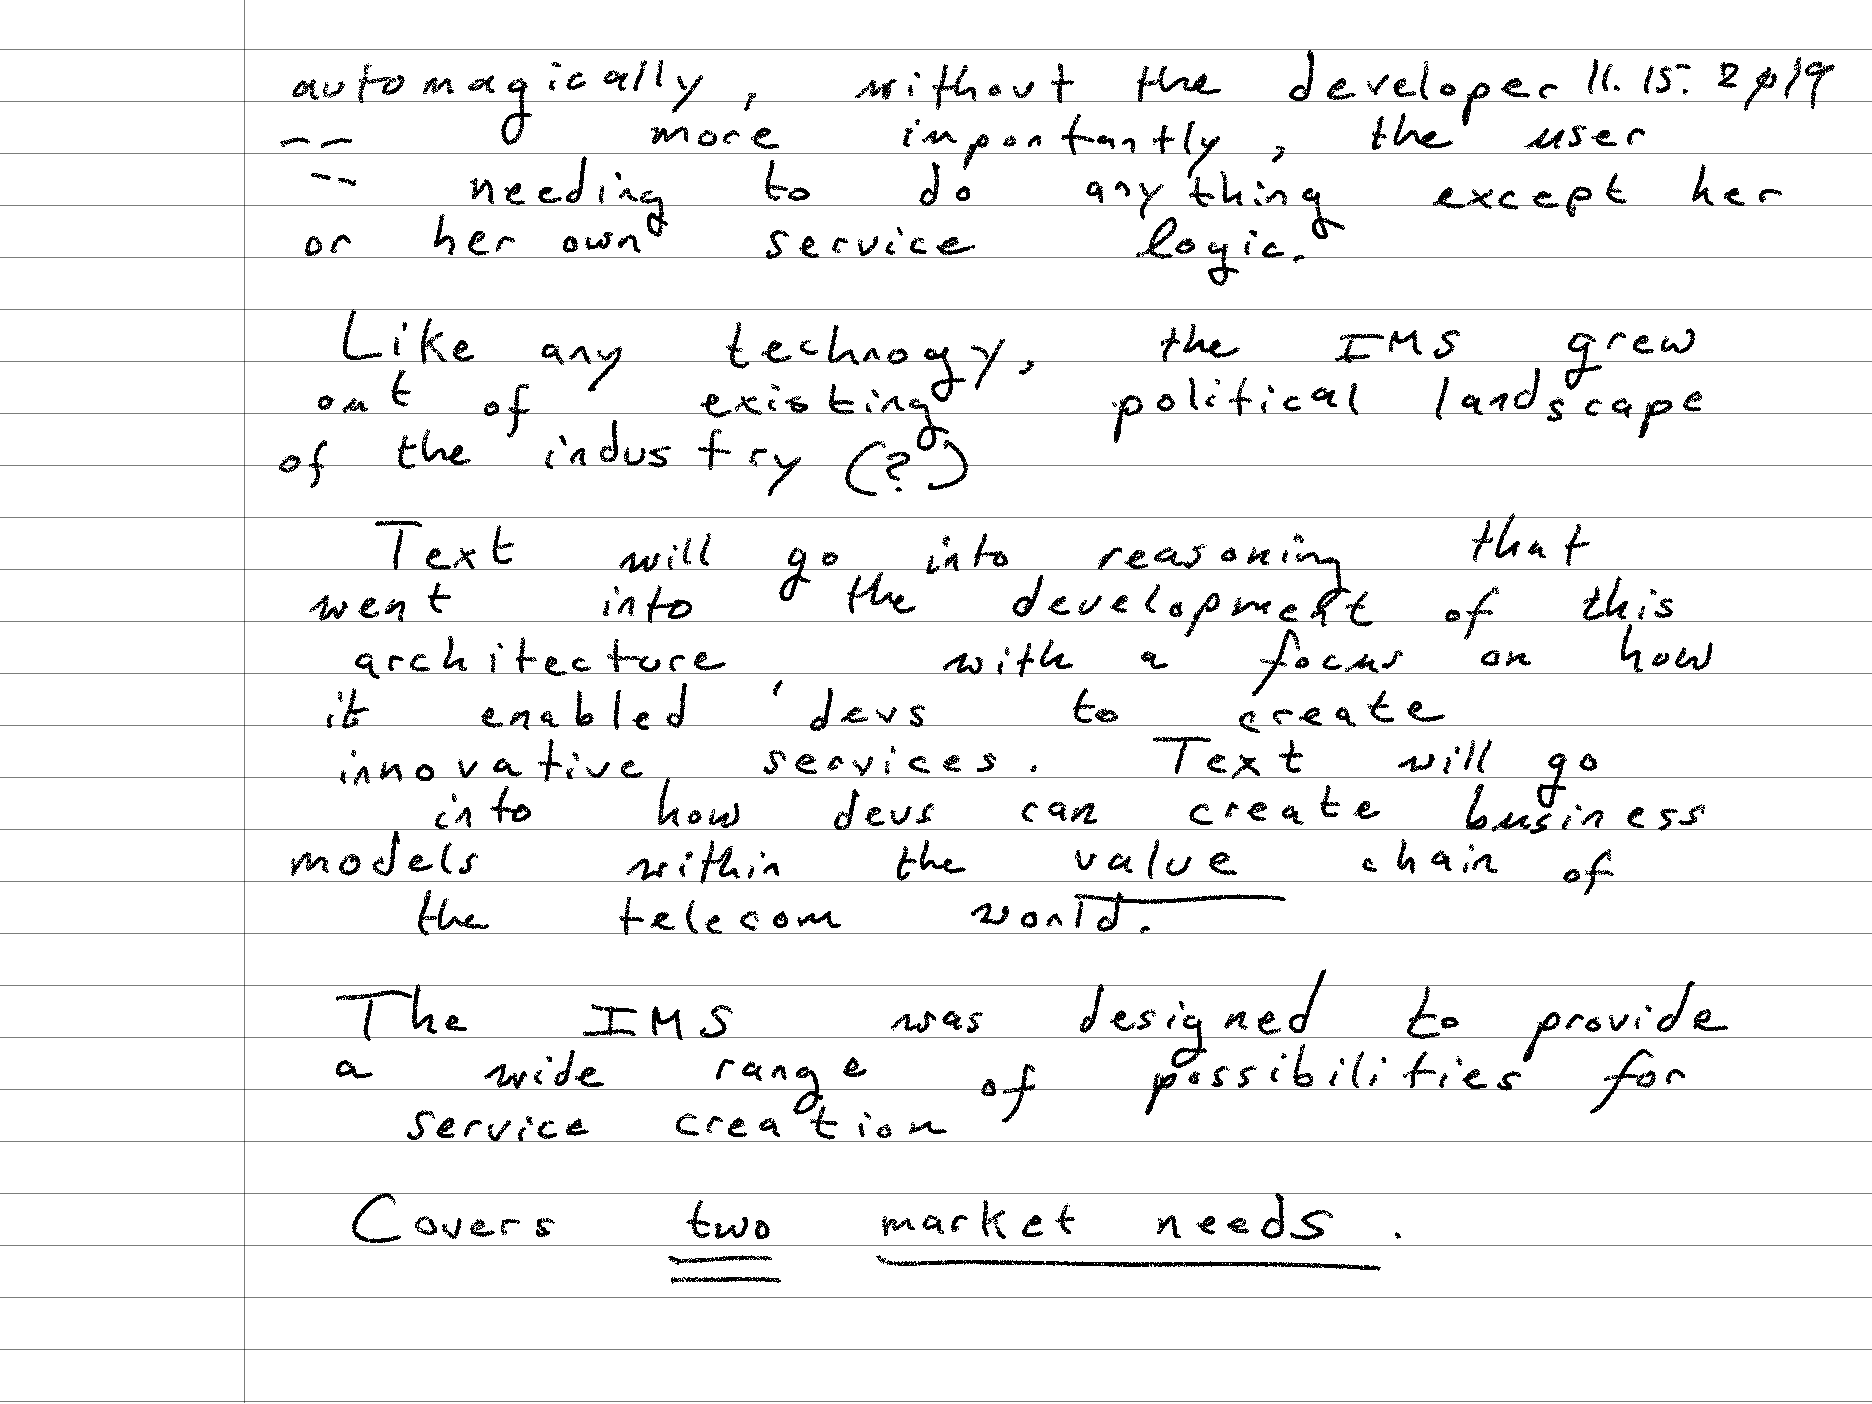 automagically, without the developer 11. 15. 2019
-- more importantly, the user
-- needing to do anything except her
or her own service logic.
Like any technogy, the IMS grew
out of existing political landscape
of the industry (?)
Text will go into reasoning that
went into the development of this
architecture, with a focus on how
it enabled devs to create
innovative services. Text will go
into how devs can create business
models within the value chain of
the telecom world.
The IMS was designed to provide
a wide range of possibilities for
service creation
Covers two market needs.